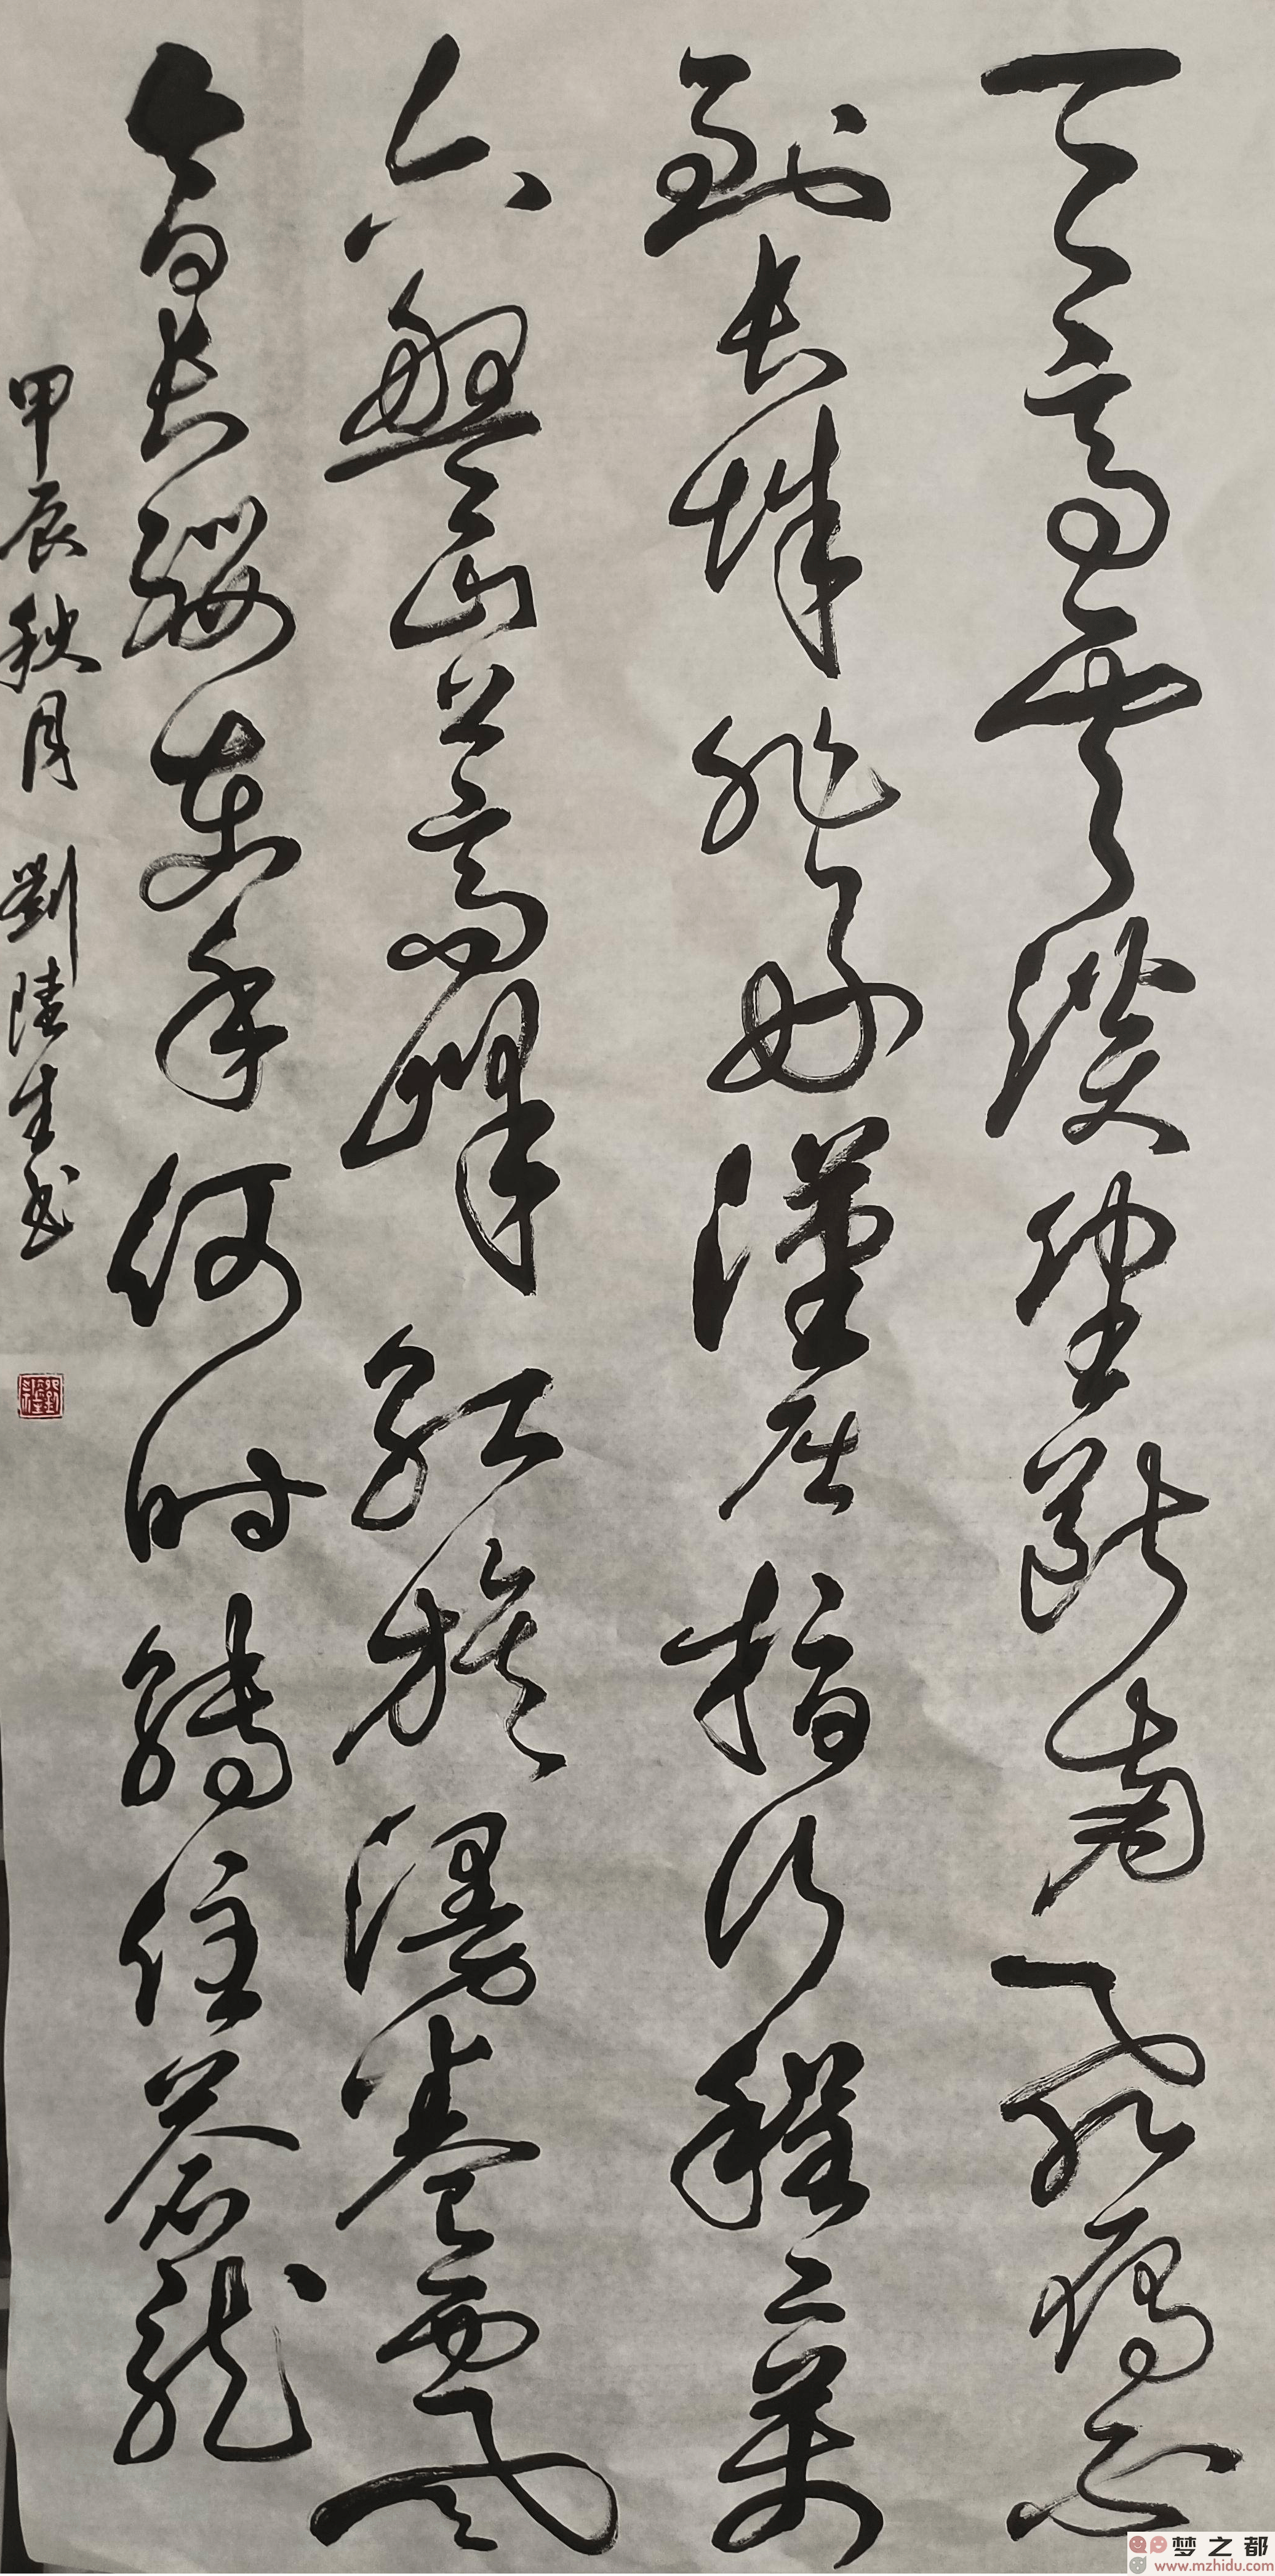 天高雲淡望斷南飛雁不
到长城非好漢屈指行程二萬
六盤山上高峰红旗漫卷西风
今日长缨在手何时缚住蒼龍
甲辰秋月 劉陸生书
梦之都
www.mzhidu.com